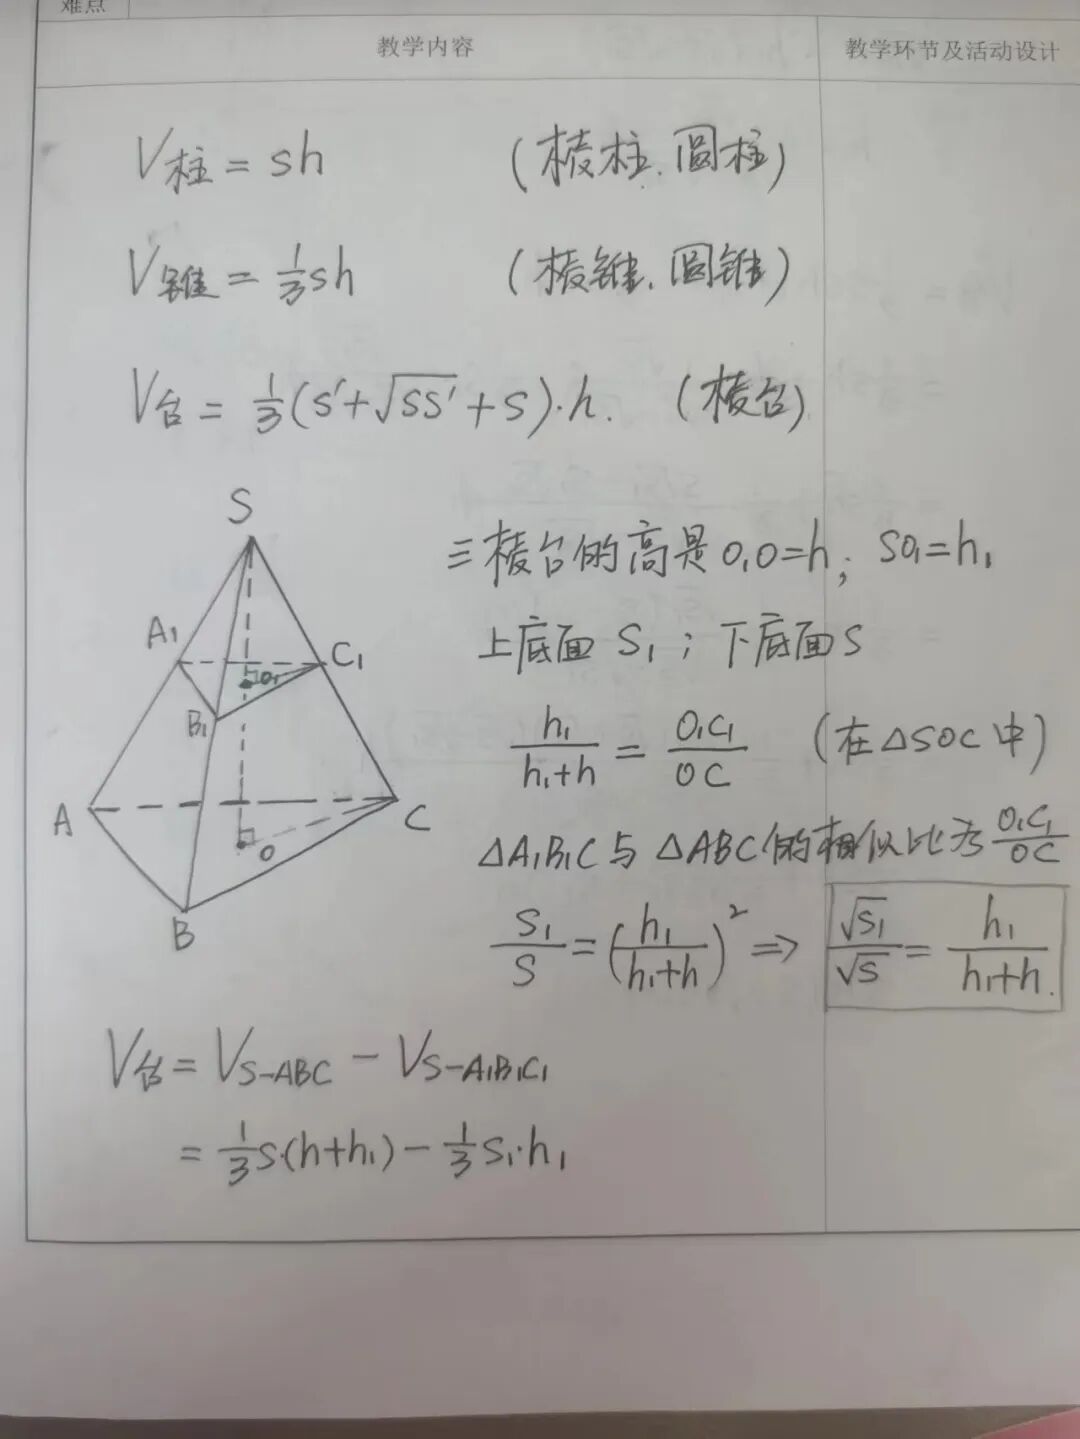 难点
教学内容 教学环节及活动设计
V柱 = sh (棱柱、圆柱)
V锥 = 1/3 sh (棱锥、圆锥)
V台 = 1/3 (s' + √ss' + s)·h. (棱台)
S
A₁
C₁
O₁
B₁
A
C
O
B
三棱台的高是O₁O=h; SO₁=h₁
上底面 S₁; 下底面S
h₁/(h₁+h) = O₁C₁/OC (在△SOC中)
△A₁B₁C与△ABC的相似比为 O₁C₁/OC
S₁/S = (h₁/(h₁+h))² ⇒ √S₁/√S = h₁/(h₁+h).
V台 = V S-ABC − V S-A₁B₁C₁
= 1/3 S·(h+h₁) − 1/3 S₁·h₁